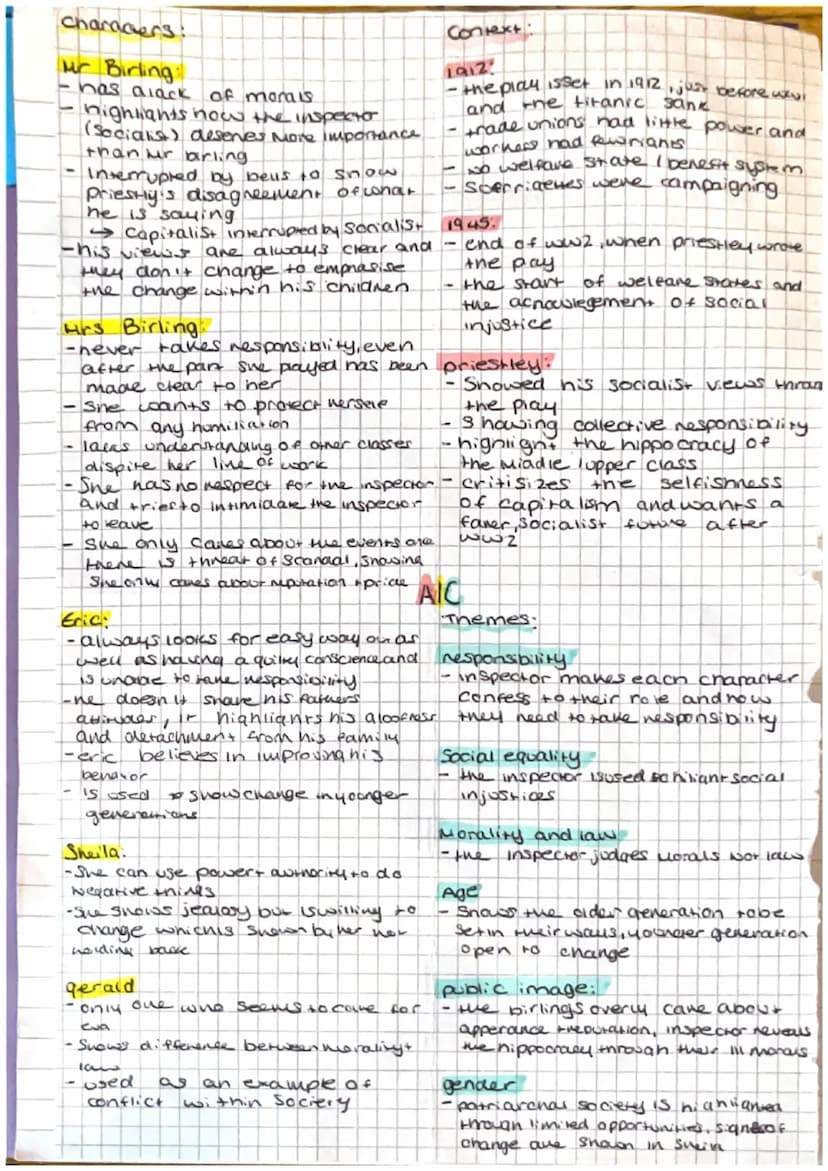 characters:
Mr Birling:
- has a lack of morals
- highlights how the inspector
(socialist) deserves more importance
than Mr birling
- Interrupted by bells to show
priestly's disagreement of what
he is saying
→ Capitalist interrupted by Socialist
- his views are always clear and
they don't change to emphasise
the change within his children
Mrs Birling:
- never takes responsiblity, even
after the part she played has been
made clear to her
- She wants to protect herself
from any humiliation
- lacks understanding of other classes
dispite her line of work
- She has no respect for the inspector
and tries to intimidate the inspector
to leave
- She only cares about the events
there is threat of scandal, showing
she only cares about reputation + pride
Eric:
- always looks for easy way out as
well as having a guilty conscience and
is unable to take responsibility
- he doesn't share his fathers
attitudes, it highlights his aloofness
and detachment from his family
- eric believes in improving his
behavior
- is used to show change in younger
generations
Sheila:
- She can use power + authority to do
negative things
- She shows jealosy but is willing to
change which is shown by her not
holding back
gerald
- only one who seems to care for
eva
- Shows difference between morality +
law
- used as an example of
conflict within society
Context:
1912:
- the play is set in 1912, just before ww1
and the titanic sank
- trade unions had little power and
workers had few rights
- no welfare state / benefit system
- were campaigning
1945:
- end of ww2, when priestley wrote
the pay
- the start of welfare states and
the acnowlegement of social
injustice
priestley:
- Showed his socialist views
the play
- Showing collective responsibility
- highlight the hippocracy of
the middle / upper class
- critisizes the selfishness
of capitalism and wants a
farer, socialist future after
ww2
AIC
Themes:
responsibility
- inspector makes each character
confess to their role and how
they need to take responsibility
Social equality
- the inspector is used to social
injustices
Morality and law
- the inspector judges morals not laws
Age
- Shows the older generation to be
set in their ways, younger generation
open to change
public image:
- the birlings overly care about
apperance + reputation, inspector reveals
the hippocracy through their ill morals
gender
- patriarchal society is
through limited opportunities, signs of
change are shown in